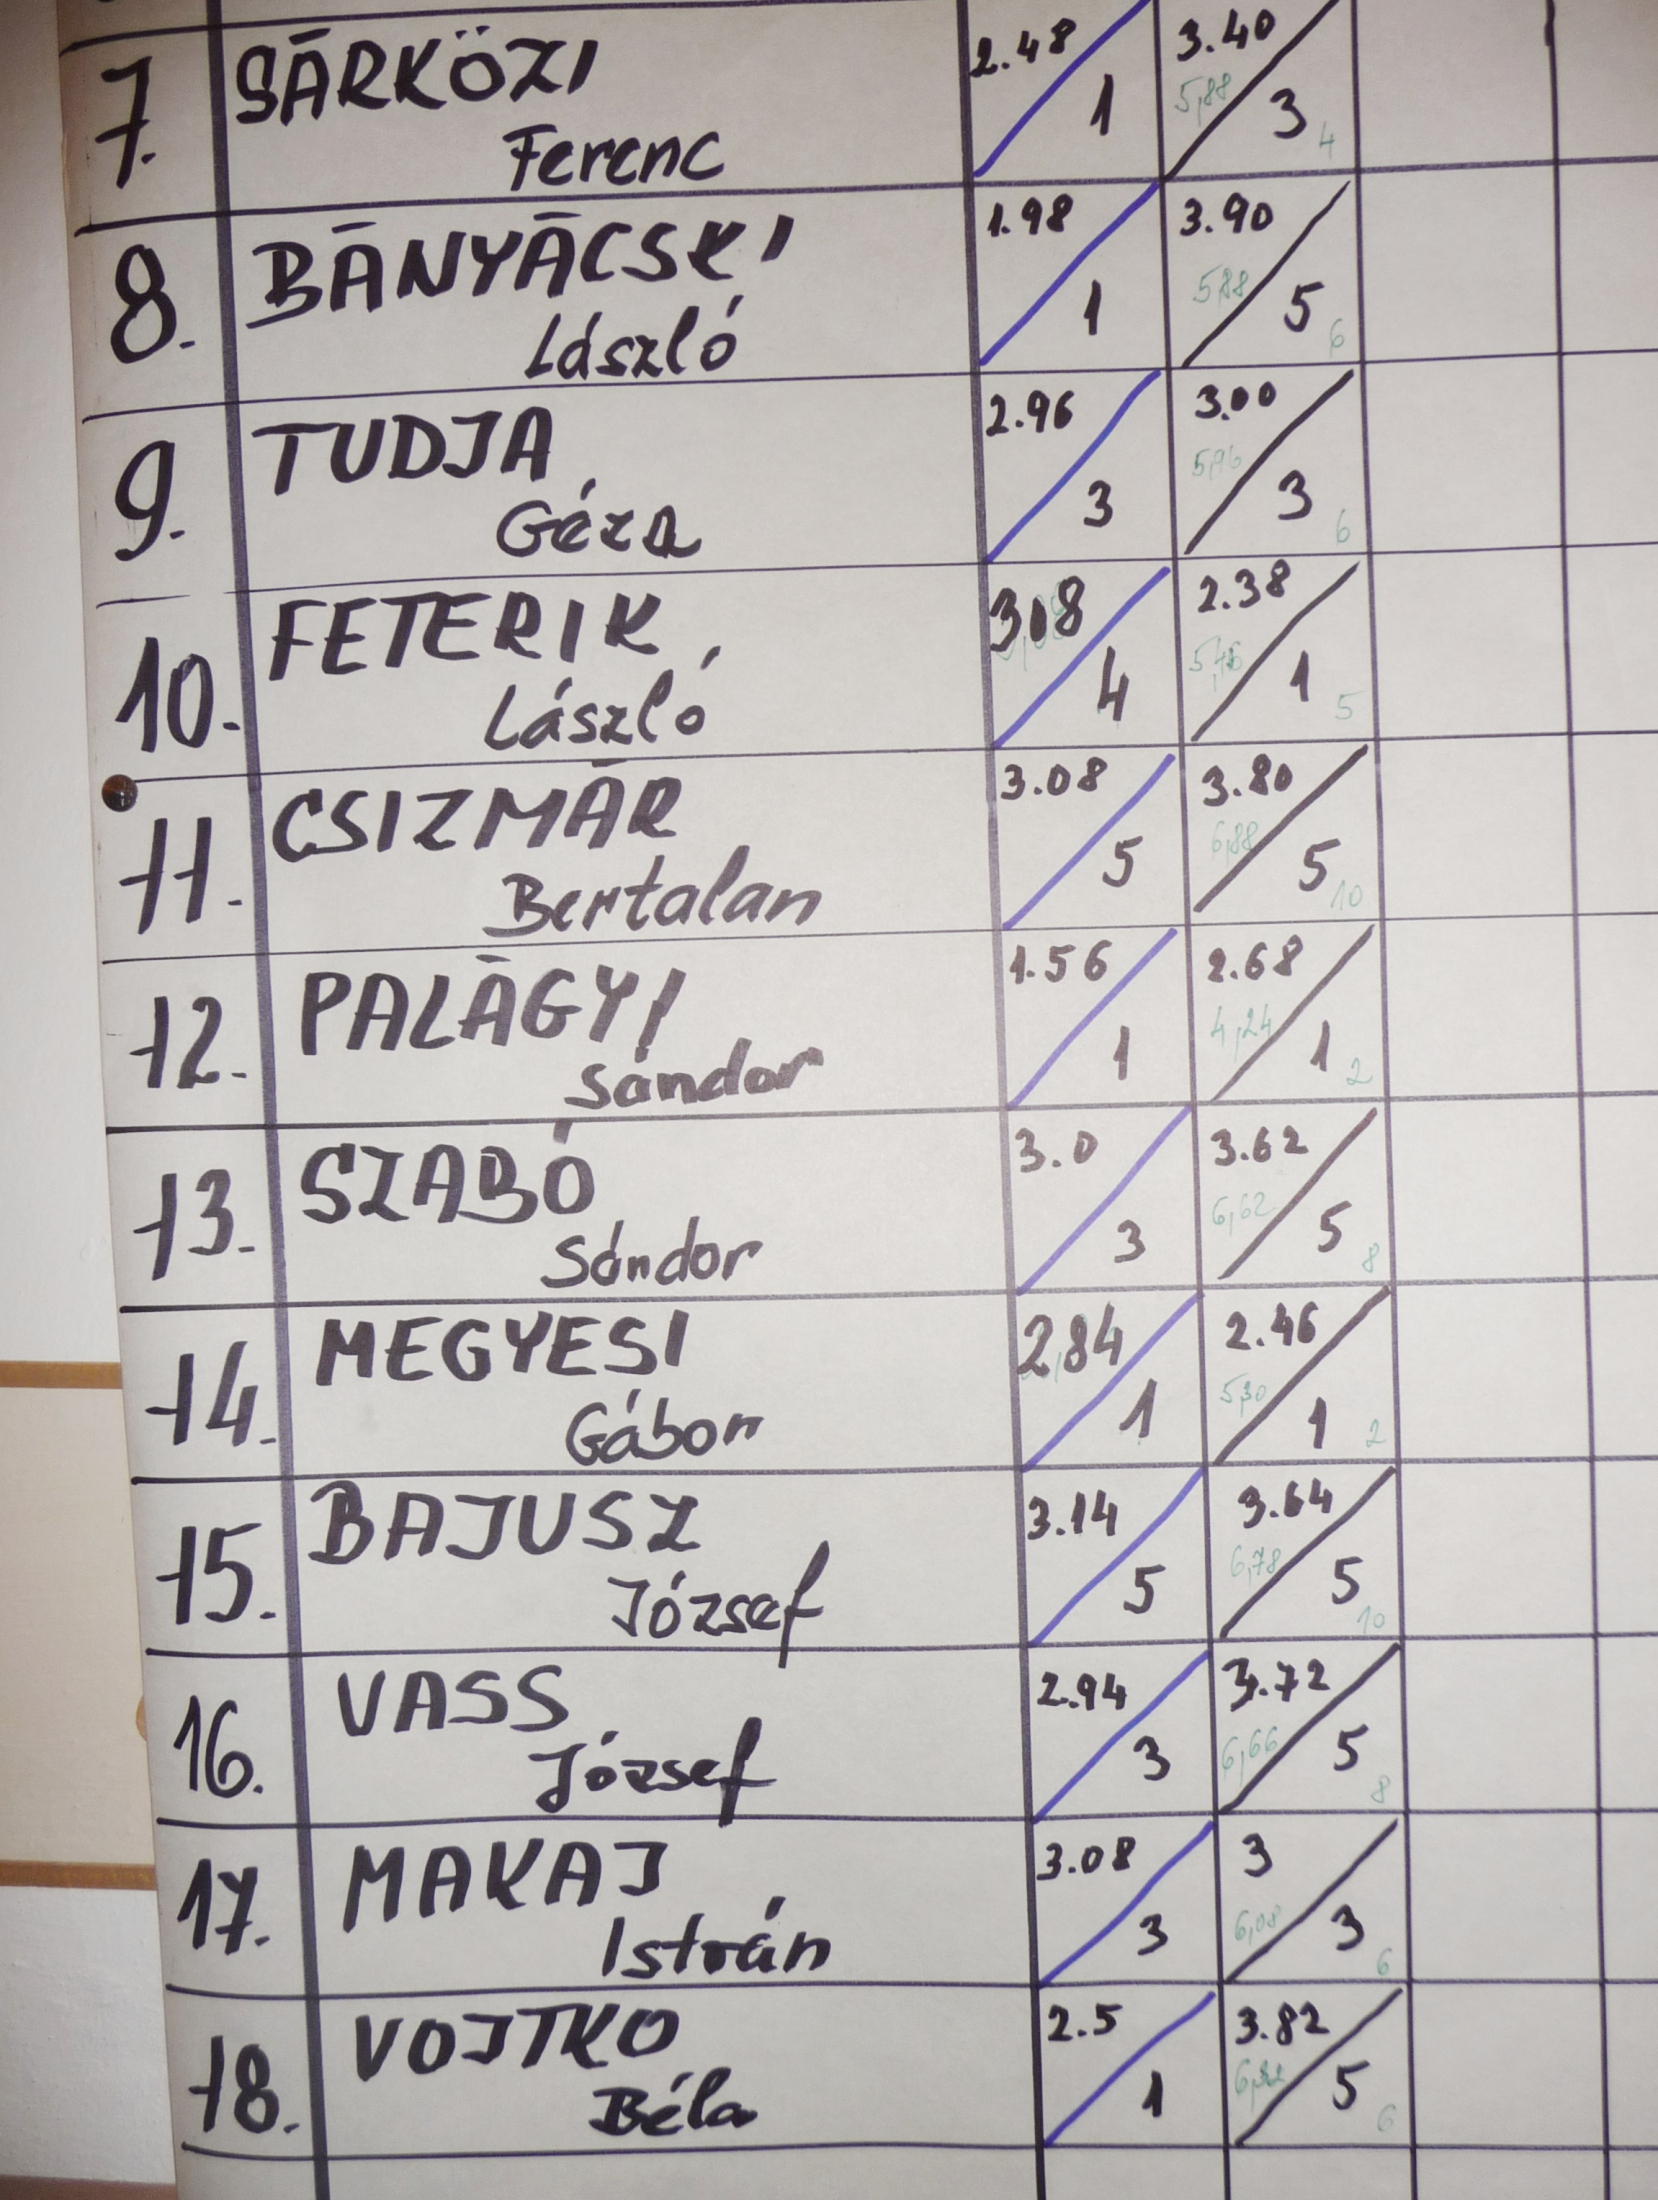 7. SÁRKÖZI 2.48 3.40
5,88
Ferenc 1 3 4
8. BÁNYÁCSKI 1.98 3.90
5,88
László 1 5 6
9. TUDJA 2.96 3.00
5,96
Géza 3 3 6
10. FETERIK 3.08 2.38
5,46
László 4 1 5
11. CSIZMÁR 3.08 3.80
6,88
Bertalan 5 5 10
12. PALÁGYI 1.56 2.68
4,24
Sándor 1 1 2
13. SZABÓ 3.0 3.62
6,62
Sándor 3 5 8
14. MEGYESI 2,84 2.46
5,30
Gábor 1 1 2
15. BAJUSZ 3.14 3.64
6,78
József 5 5 10
16. VASS 2.94 3.72
6,66
József 3 5 8
17. MAKAJ 3.08 3
6,08
István 3 3 6
18. VOJTKO 2.5 3.82
Béla 1 5 6